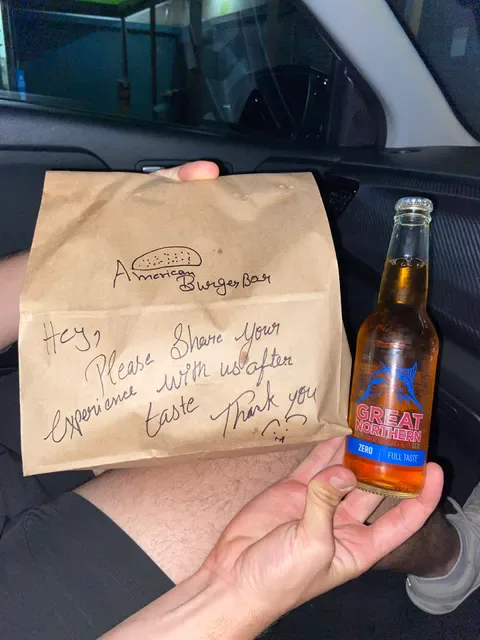 American
Burger Bar
Hey,
Please Share Your
experience with us after
taste Thank you
GREAT
NORTHERN
ZERO FULL TASTE